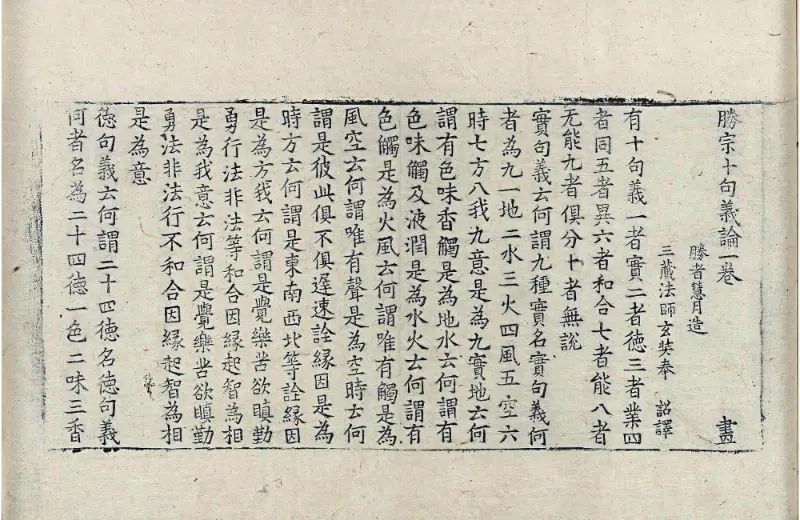 勝宗十句義論一巻 畫
勝者慧月造
三蔵法師玄奘奉 詔譯
有十句義一者實二者徳三者業四
者同五者異六者和合七者能八者
无能九者俱分十者無說
實句義云何謂九種實名實句義何
者為九一地二水三火四風五空六
時七方八我九意是為九實地云何
謂有色味香觸是為地水云何謂有
色味觸及液潤是為水火云何謂有
色觸是為火風云何謂唯有觸是為
風空云何謂唯有聲是為空時云何
謂是彼此俱不俱遲速詮緣因是為
時方云何謂是東南西北等詮緣因
是為方我云何謂是覺樂苦欲瞋勤
勇行法非法等和合因緣起智為相
是為我意云何謂是覺樂苦欲瞋勤
勇法非法行不和合因緣起智為相
是為意
徳句義云何謂二十四徳名徳句義
何者名為二十四徳一色二味三香